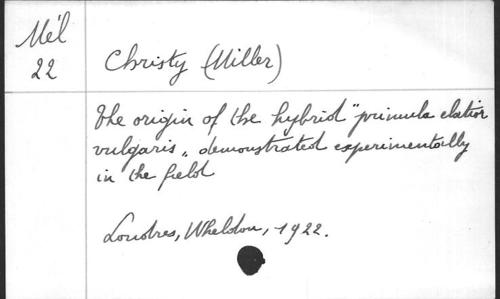 Mél
22
Christy (Miller)
The origin of the hybrid "primula elatior
vulgaris" demonstrated experimentally
in the field
Londres, Wheldon, 1922.